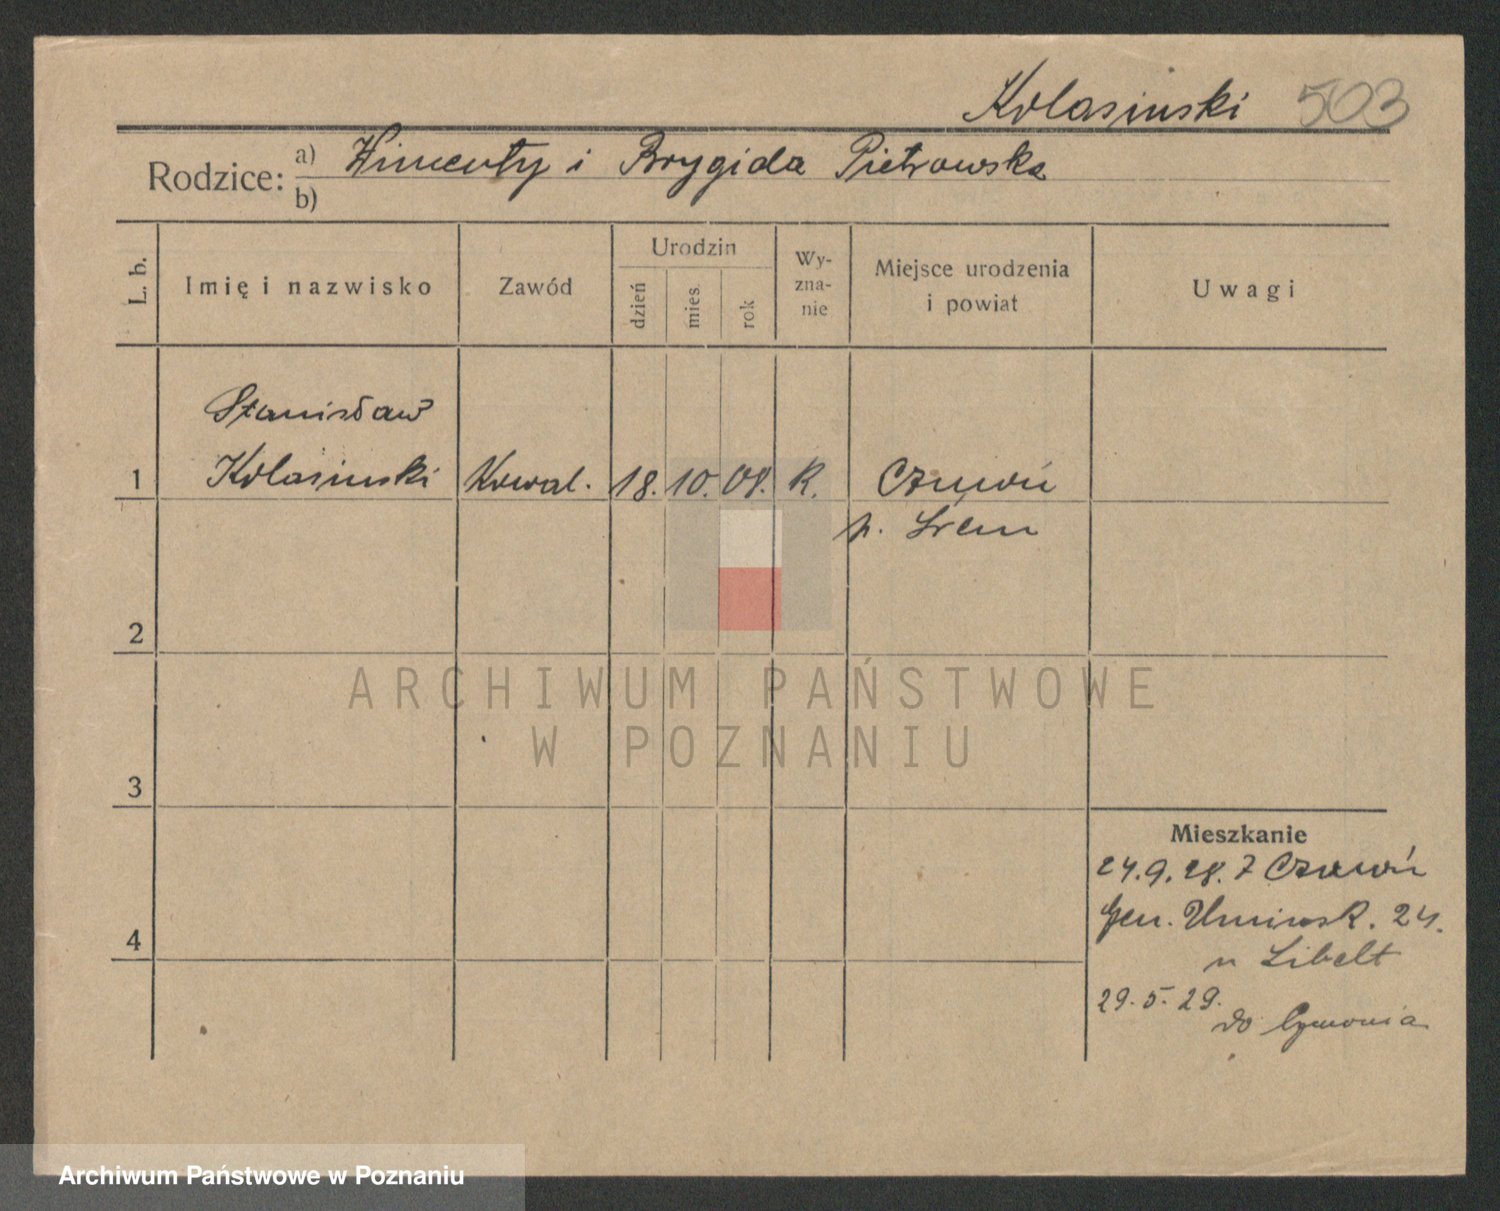 Kolasinski 503
Rodzice: a) Wincenty i Brygida Pietrowska
b)
L. b.
Imię i nazwisko
Zawód
Urodzin
dzień
mies.
rok
Wy-
zna-
nie
Miejsce urodzenia
i powiat
Uwagi
Stanisław
1 Kolasinski Kowal. 18. 10. 08. R.
p. Śrem
2
3
4
Mieszkanie
24.9.28. z
Gen. Uminsk. 24.
u Libelt
29.5.29.
do
ARCHIWUM PAŃSTWOWE
W POZNANIU
Archiwum Państwowe w Poznaniu